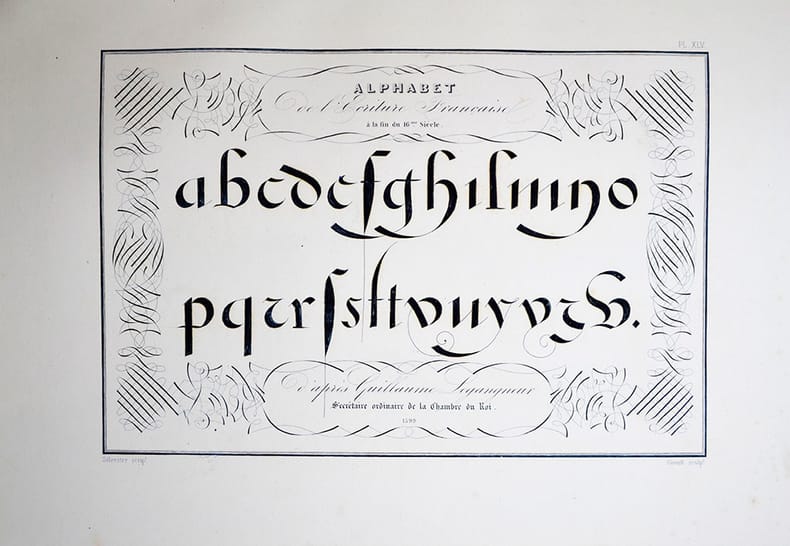 PL. XLV
ALPHABET
de l'Ecriture Française
à la fin du 16me Siècle.
abcdefghilmno
pqꝛrſsttvuyvz&.
d'après Guillaume Legangneur
Secrétaire ordinaire de la Chambre du Roi.
1599
Silvestre script
sculpt